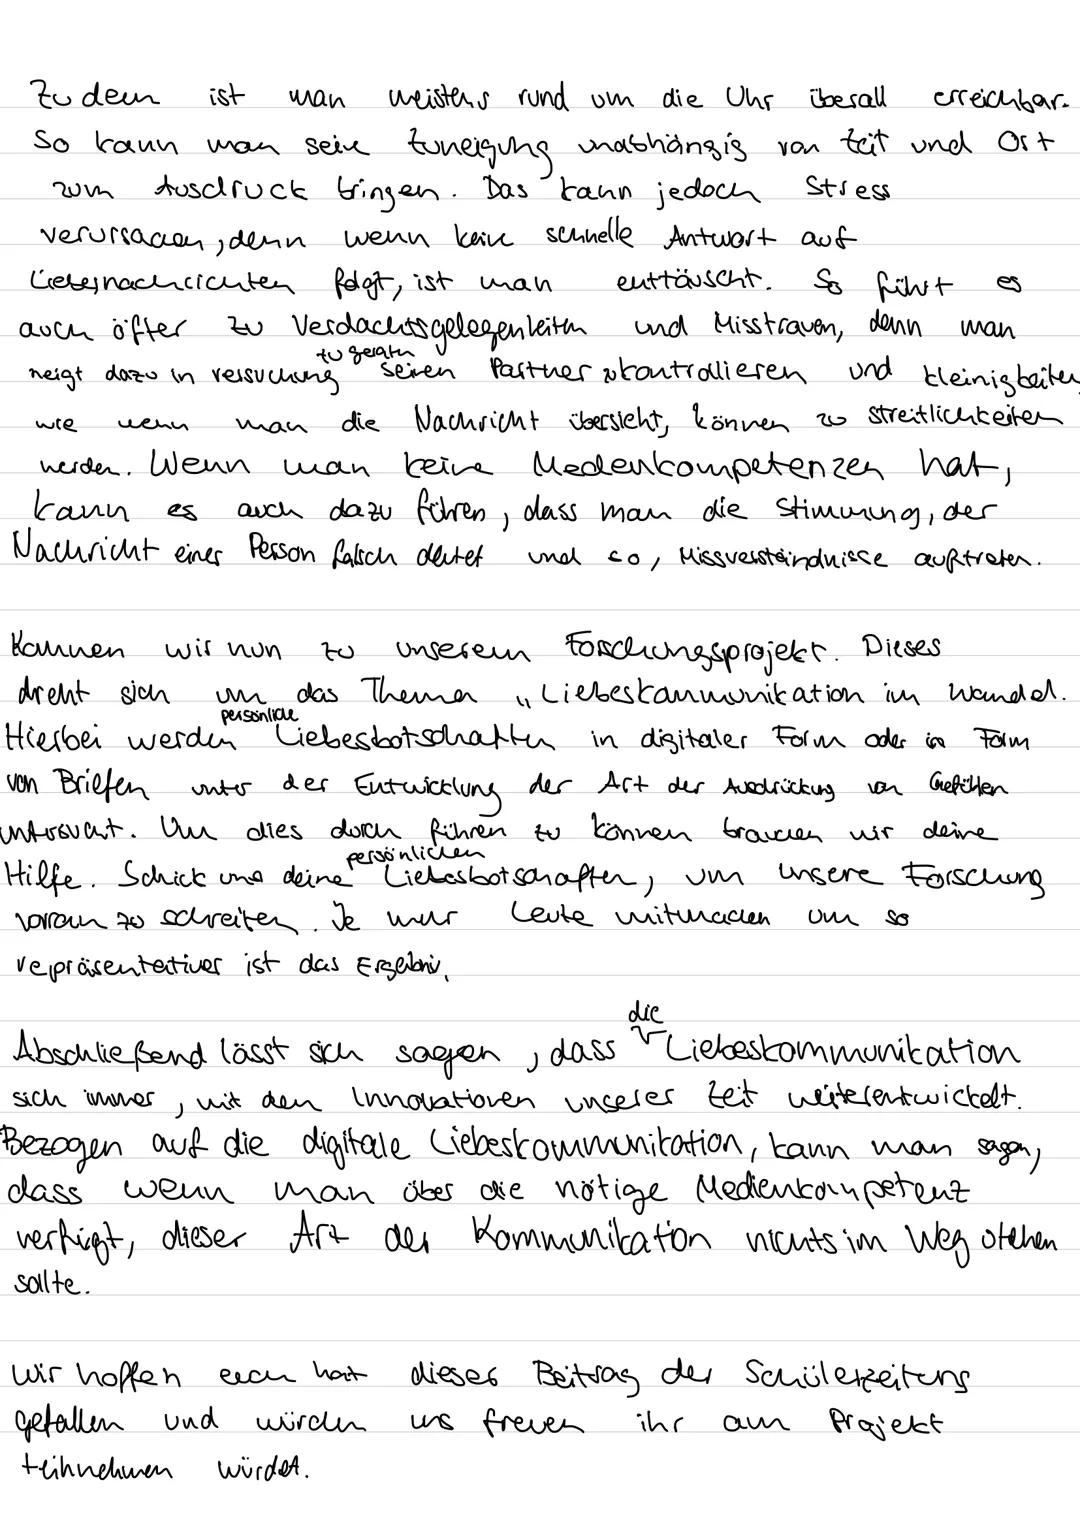 Zudem ist man meistens rund um die Uhr überall erreichbar.
So kann man seine Zuneigung unabhängig von Zeit und Ort
zum Ausdruck bringen. Das kann jedoch Stress
verursachen, denn wenn keine schnelle Antwort auf
Liebesnachrichten folgt, ist man enttäuscht. So führt es
auch öfter zu Verdachtsgelegenheiten und Misstrauen, denn man
zu geraten
neigt dazu in versuchung seinen Partner zu kontrollieren und kleinigkeiten
wie wenn man die Nachricht übersieht, können zu streitlichkeiten
werden. Wenn man keine Medienkompetenzen hat,
kann es auch dazu führen, dass man die Stimmung, der
Nachricht einer Person falsch deutet und so, Missverständnisse auftreten.
Kommen wir nun zu unserem Forschungsprojekt. Dieses
dreht sich um das Thema „Liebeskommunikation im Wandel.
persönliche
Hierbei werden Liebesbotschaften in digitaler Form oder in Form
von Briefen unter der Entwicklung der Art der Ausdrückung von Gefühlen
untersucht. Um dies durch führen zu können brauchen wir deine
persönlichen
Hilfe. Schick uns deine Liebesbotschaften, um unsere Forschung
voran zu schreiten. Je mehr Leute mitmachen um so
repräsentativer ist das Ergebnis.
die
Abschließend lässt sich sagen, dass Liebeskommunikation
sich immer, mit den Innovationen unserer Zeit weiterentwickelt.
Bezogen auf die digitale Liebeskommunikation, kann man sagen,
dass wenn man über die nötige Medienkompetenz
verfügt, dieser Art der Kommunikation nichts im Weg stehen
sollte.
Wir hoffen euch hat dieser Beitrag der Schülerzeitung
gefallen und würden uns freuen ihr am Projekt
teilnehmen würdet.